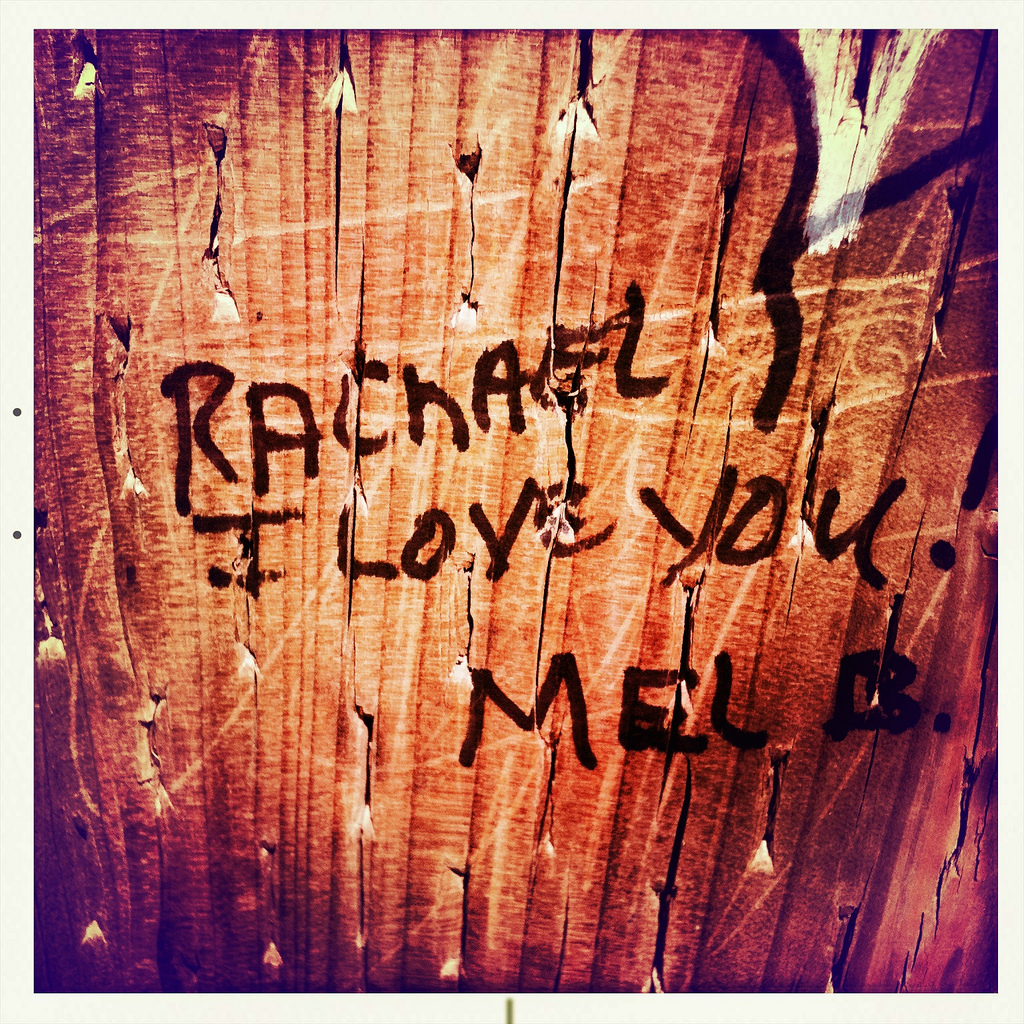 RACHAEL
I LOVE YOU.
MEL B.